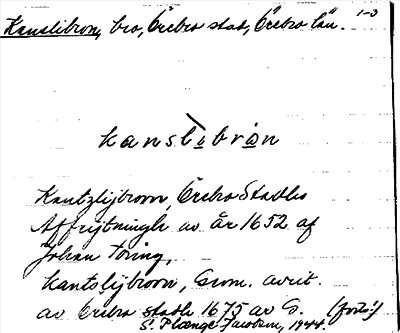 Kanslibron, bro, Örebro stad, Örebro län. 1-3
kanslibròn
Kantzlijbroon, Örebro Stadhs
Affrijtningh av år 1652 af
Johan Töring,
Kantslijbroon, Geom. avrit.
av Örebro stadh 1675 av G. (forts!)
S. Placenge Jacobson, 1944.